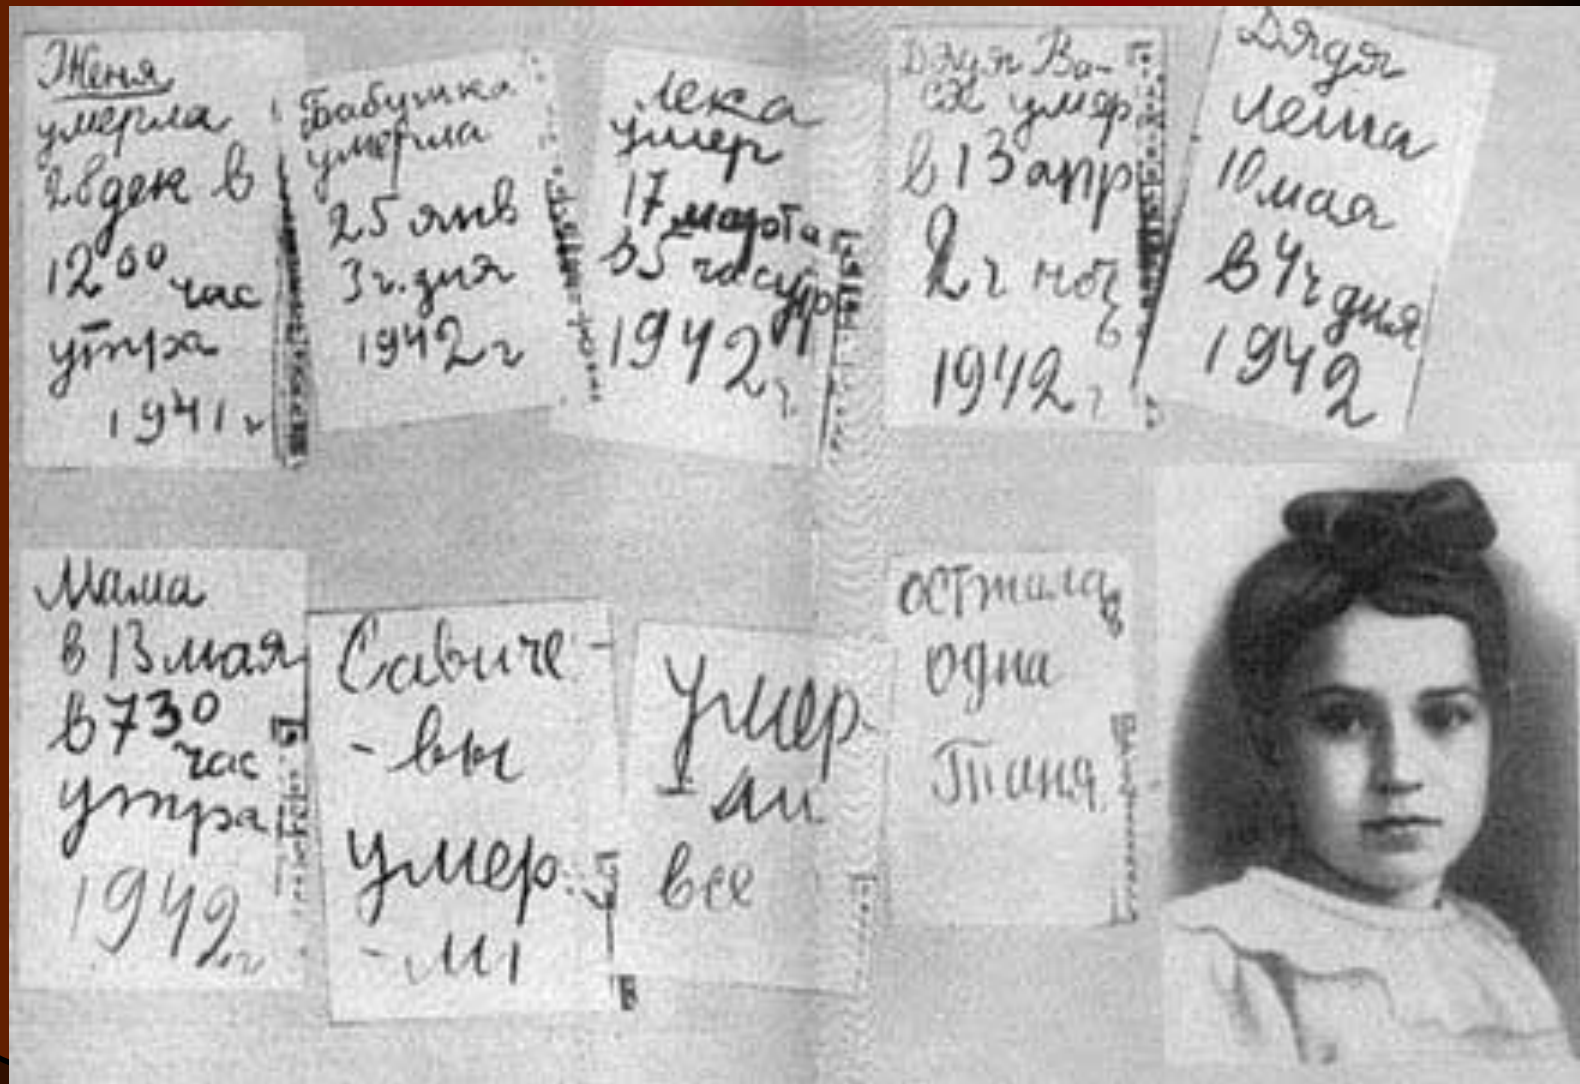 Женя
умерла
28 дек в
12 00 час
утра
1941 г
Бабушка
умерла
25 янв
3 ч. дня
1942 г
Лека
умер
17 марта
в 5 час утр
1942 г.
Дядя Ва-
ся умер
в 13 апр
2 ч ноч
1942 г
Дядя
Леша
10 мая
в 4 ч дня
1942
Мама
в 13 мая
в 7 30
час
утра
1942 г
Савиче-
-вы
умер
-ли
Умер
-ли
все
осталась
одна
Таня